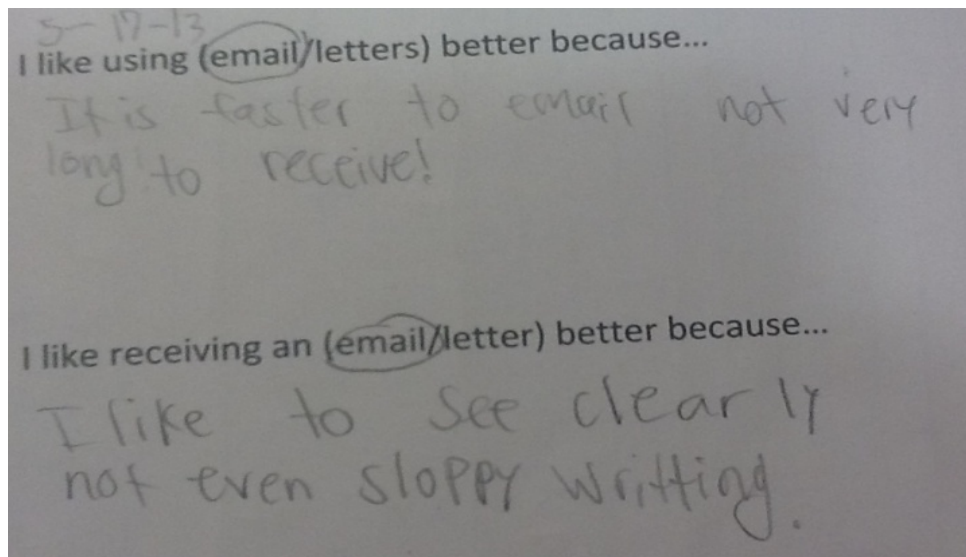 5-17-13
I like using (email/letters) better because...
It is faster to email not very
long to receive!
I like receiving an (email/letter) better because...
I like to see clearly
not even sloppy writting.